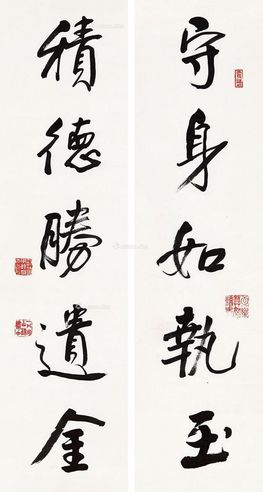 守身如執玉
積德勝遺金